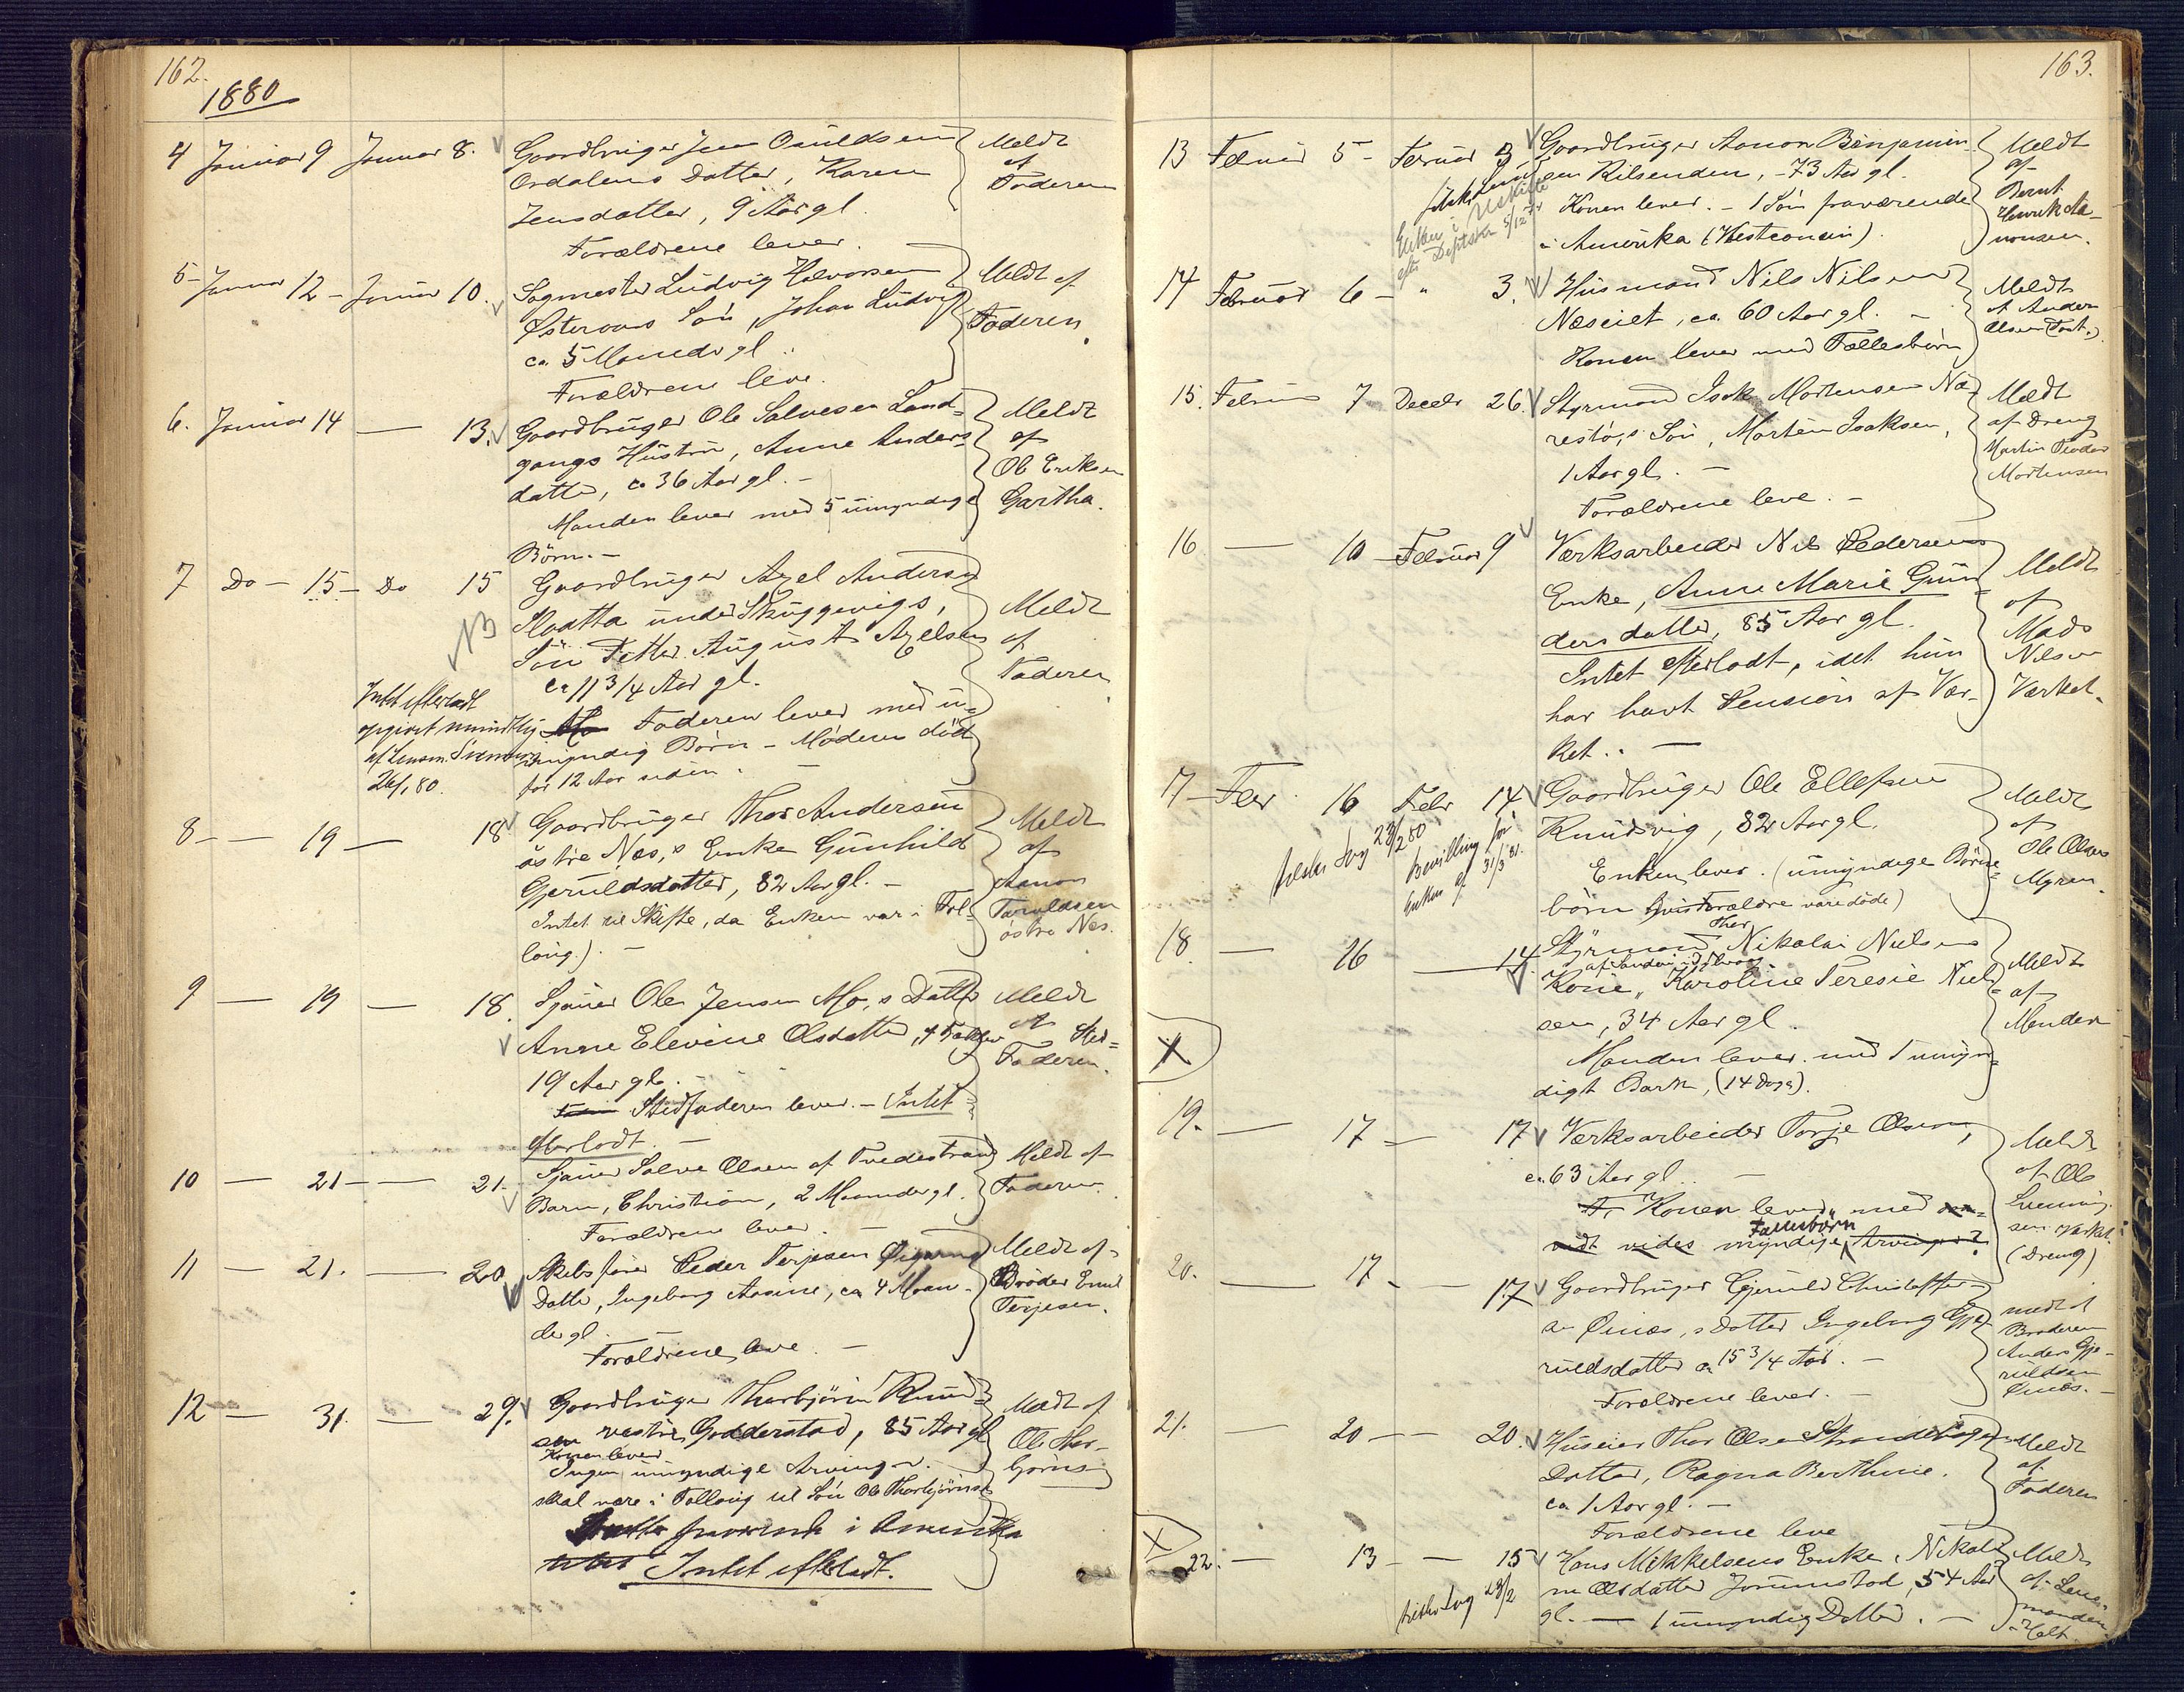 162.
1880
4 Januar 9 Januar 8. Gaardbruger Jens Osuldsen
Ordalens Datter, Karen
Jensdatter, 9 Aar gl.
Forældrene lever.
Meldt
af
Faderen
5 Januar 12 - Januar 10. Sagmester Ludvig Halvorsen
Søn, Johan Ludvig
ca 5 Maaneder gl.
Forældrene leve.
Meldt af
Faderen.
6. Januar 14 — 13. Gaardbruger Ole Salvesen Land-
gangs Hustru, Anne Anders
datter, ca 36 Aar gl. -
Manden lever med 5 umyndige
Børn. -
Meldt
af
Ole Eriksen
Gartha.
7 Do - 15 - Do 15 Gaardbruger Axel Anders
NB
under Skuggevigs,
Søn Fetter August Axelsen
ca 11 3/4 Aar gl.
Faderen lever med u-
myndig Børn - Moderen död
for 12 Aar siden.
Meldt
af
Faderen
Intet efterladt
opgivet mundtlig
af Lensm.
26/1 80.
8 — 19 — 18 Gaardbruger Thor Andersen
östre Næs,s Enke Gunhild
Gjeruldsdatter, 82 Aar gl. -
Intet til Skifte, da Enken var i Fol-
loug). -
Meldt
af
Aanon
Taraldsen
östre Næs.
9 — 19 — 18. Ole Jensen Mo,s Datter
Anne Elevine Olsdatter,
19 Aar gl.
Stedfaderen lever. - Intet
efterladt. -
Meldt
af Sted-
Faderen.
10 — 21 — 21. Salve Olsen af Tvedestrand
Barn, Christian, 2 Maaneder gl.
Forældrene lever. -
Meldt af
Faderen.
11 — 21. — 20 Skibsfører Peder Terjesen
Datter, Ingeborg Aasine, ca 4 Maane-
der gl.
Forældrene leve. -
Meldt af
Broder Emil
Terjesen.
12 — 31. — 29. Gaardbruger Thorbjörn Knud-
sen vestre Godderstad, 85 Aar gl
Konen lever
Ingen umyndige Arvinger. -
skal være i Folloug til Søn Ole Thorbjörnsen
fraværende i Amerika
Intet efterladt.
Meldt af
Ole Thor-
björns-
163.
13 Februar 5 - Februar 3. Gaardbruger Aanon Benjamin-
sen Kilsenden, - 73 Aar gl.
Konen lever. - 1 Søn fraværende
i Amerika (Westconsin).
Enken i Uskifte
5/12
Meldt
af
Bernt
Henrik Aa-
nonsen.
14 Februar 6 - " 3. Husmand Nils Nilsen
Næseiet, ca. 60 Aar gl. -
Konen lever med Fællesbørn
Meldt
af Anders
Olsen
15. Februar 7 Decebr 26. Styrmand Isak Mortensen Næ-
restö,s Søn, Morten Isaksen,
1 Aar gl. -
Forældrene leve. -
Meldt
af Dreng
Martin Teodor
Mortensen
16 — 10 - Februar 9 Værksarbeider Nils Pedersens
Enke, Anne Marie Gun-
dersdatter, 85 Aar gl.
Intet efterladt, idet hun
har havt Pension af Vær-
ket. -
Meldt
af
Mads
Nilsen
Værket.
17 - Febr. 16 Febr 14 Gaardbruger Ole Ellefsen
Knudsvig, 82 Aar gl.
Enken lever. (umyndige Børne-
børn hvis Forældre vare døde)
23/2 80
Bevilling for
Enken af 31/3 81.
Meldt
af
Ole Olsen
Myren.
18. — 16 — 14. Styrmand Thor Nikolai Nielsens
Kone, Karoline Teresie Niel-
sen, 34 Aar gl.
Manden lever med 1 umyn-
digt Barn, (14 Dage).
X
Meldt
af
Manden
19. — 17 — 17 Værksarbeider Torje Olsen,
ca. 63 Aar gl. -
Konen lever, med
vidt vides myndige Fællesbörn Arvinger?
Meldt
af Ole
sen Værket.
(Dreng)
20. — 17. — 17 Gaardbruger Gjeruld Christoffer-
sen Öinæs,s Datter Ingeborg Gje-
ruldsdatter ca 15 3/4 Aar. -
Forældrene lever. -
meldt af
Broderen
Anders Gje-
ruldsen
Öinæs. -
21. — 20 — 20. Huseier Thor Olsen
Datter, Ragna Berthine.
ca 1 Aar gl. -
Forældrene leve
Meldt
af
Faderen
X
22. — 13 — 15 Hans Mikkelsens Enke, Nikoli-
ne Olsdatter Jorunnstad, 54 Aar
gl. — 1 umyndig Datter. -
23/2
Meldt
af Lens-
manden
Holt.